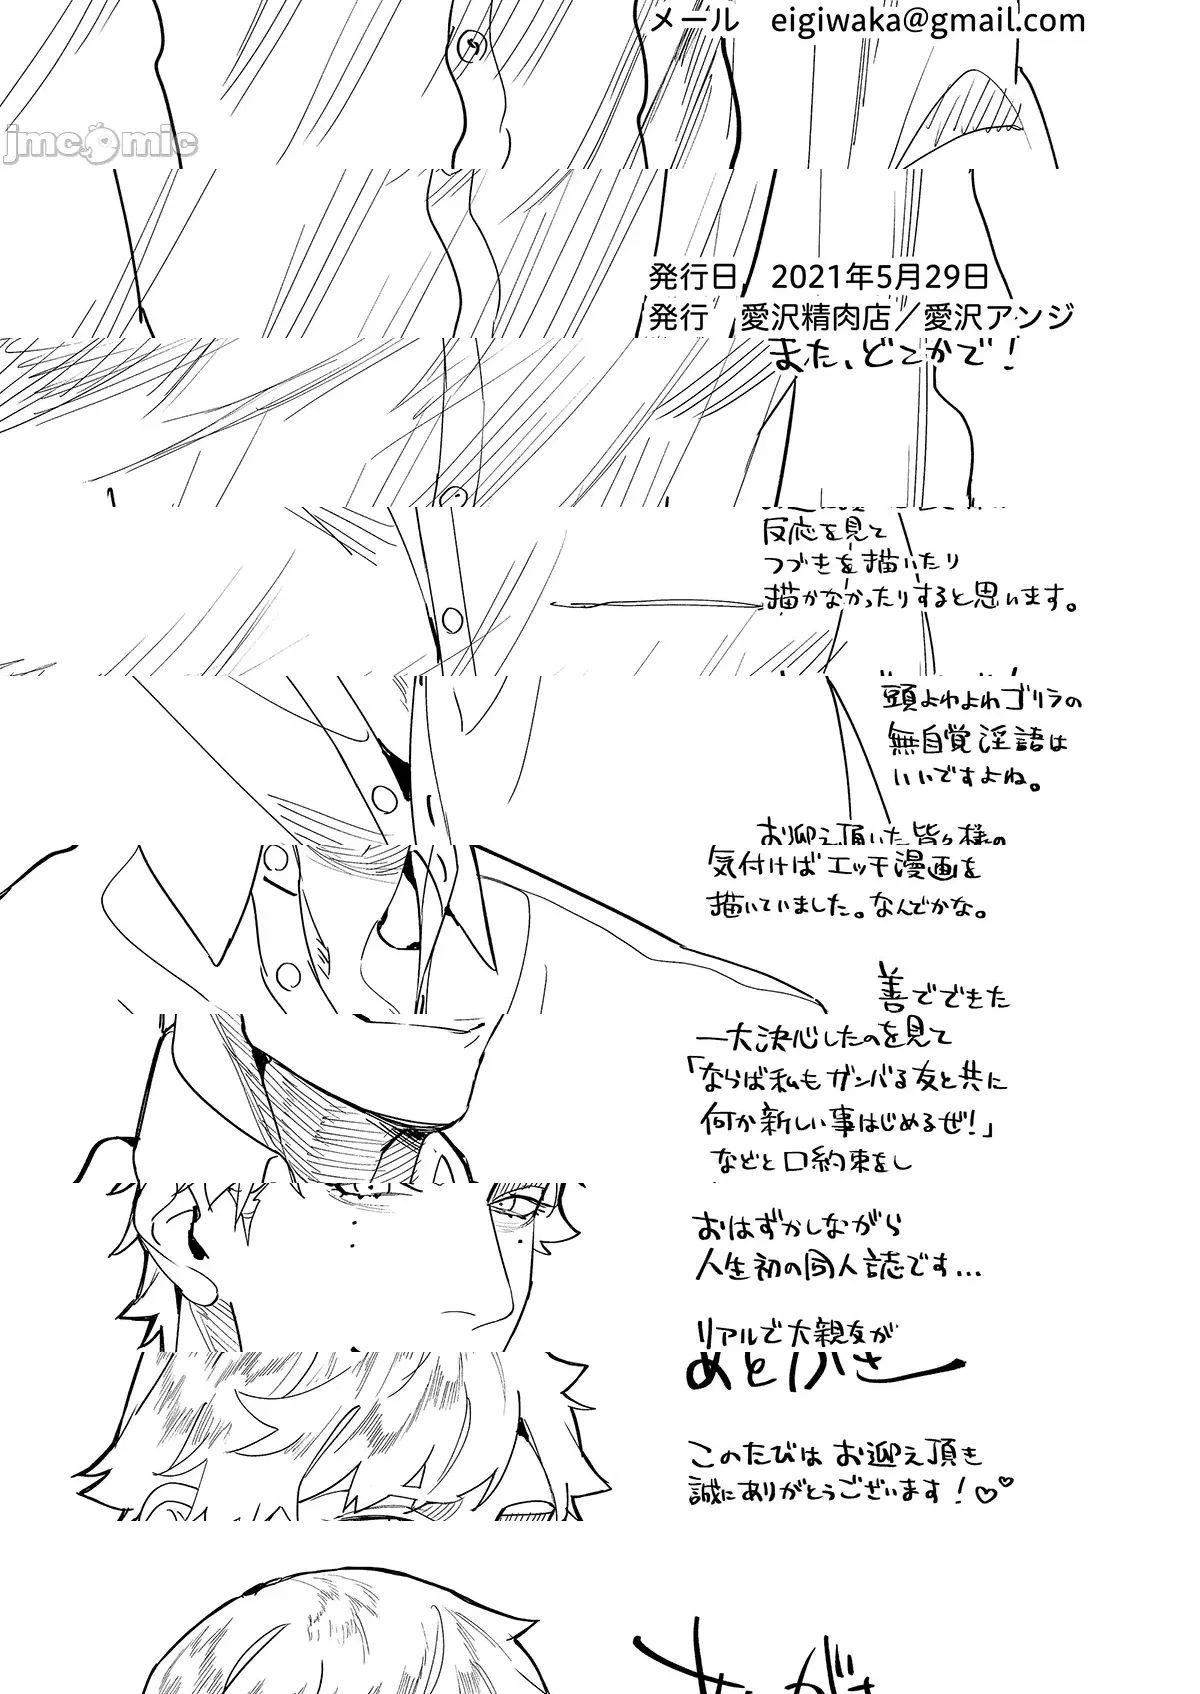 メール　eigiwaka@gmail.com
jmcomic
発行日　2021年5月29日
発行　愛沢精肉店／愛沢アンジ
また、どこかで！
反応を見て
つづきを描いたり
描かなかったりすると思います。
頭よわよわゴリラの
無自覚淫語は
いいですよね。
お迎え頂いた皆々様の
気付けばエッチ漫画を
描いていました。なんでかな。
善でできた
一大決心したのを見て
「ならば私もガンバる友と共に
何か新しい事はじめるぜ！」
などと口約束をし
おはずかしながら
人生初の同人誌です...
リアルで大親友が
あとがき
このたびは お迎え頂き
誠にありがとうございます！♡♡